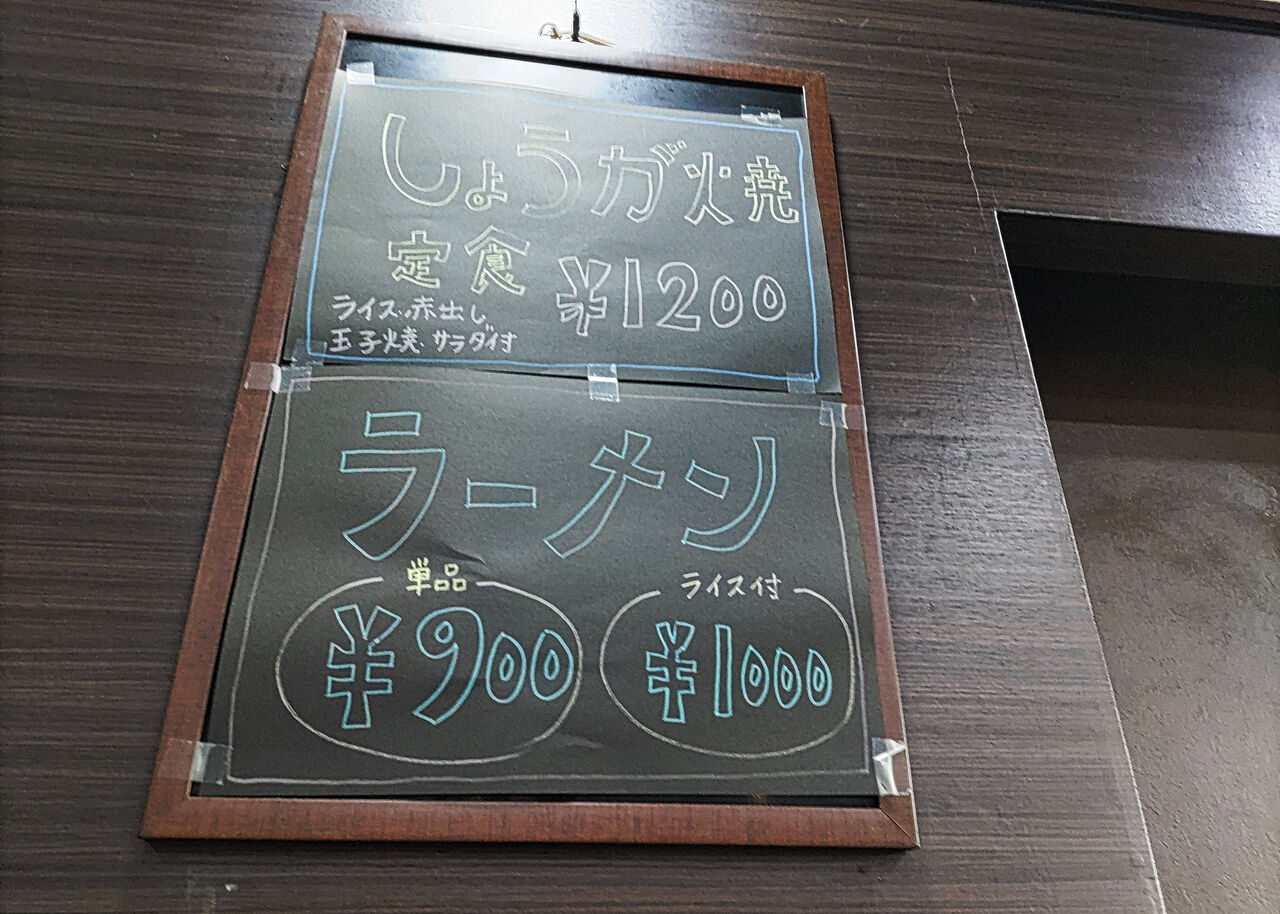 しょうが焼
定食 ¥1200
ライス、赤出し、
玉子焼、サラダ付
ラーメン
単品 ライス付
¥900 ¥1000